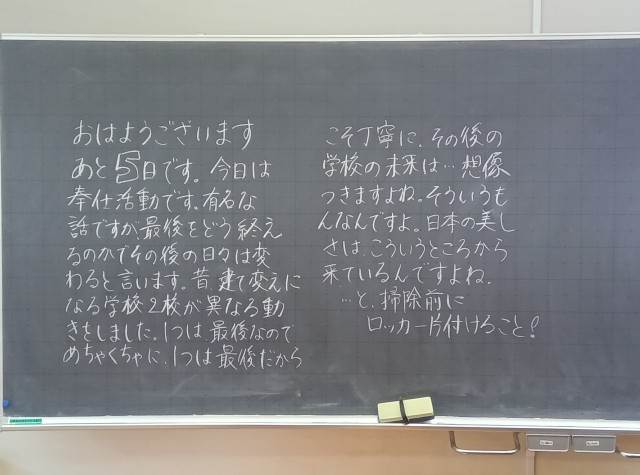 おはようございます
あと5日です。今日は
奉仕活動です。有名な
話ですが最後をどう終え
るのかでその後の日々は変
わると言います。昔、建て変えに
なる学校2校が異なる動
きをしました。1つは、最後なので
めちゃくちゃに、1つは最後だから
こそ丁寧に、その後の
学校の未来は…想像
つきますよね。そういうも
んなんですよ。日本の美し
さは、こういうところから
来ているんですよね。
…と、掃除前に
ロッカー片付けること!